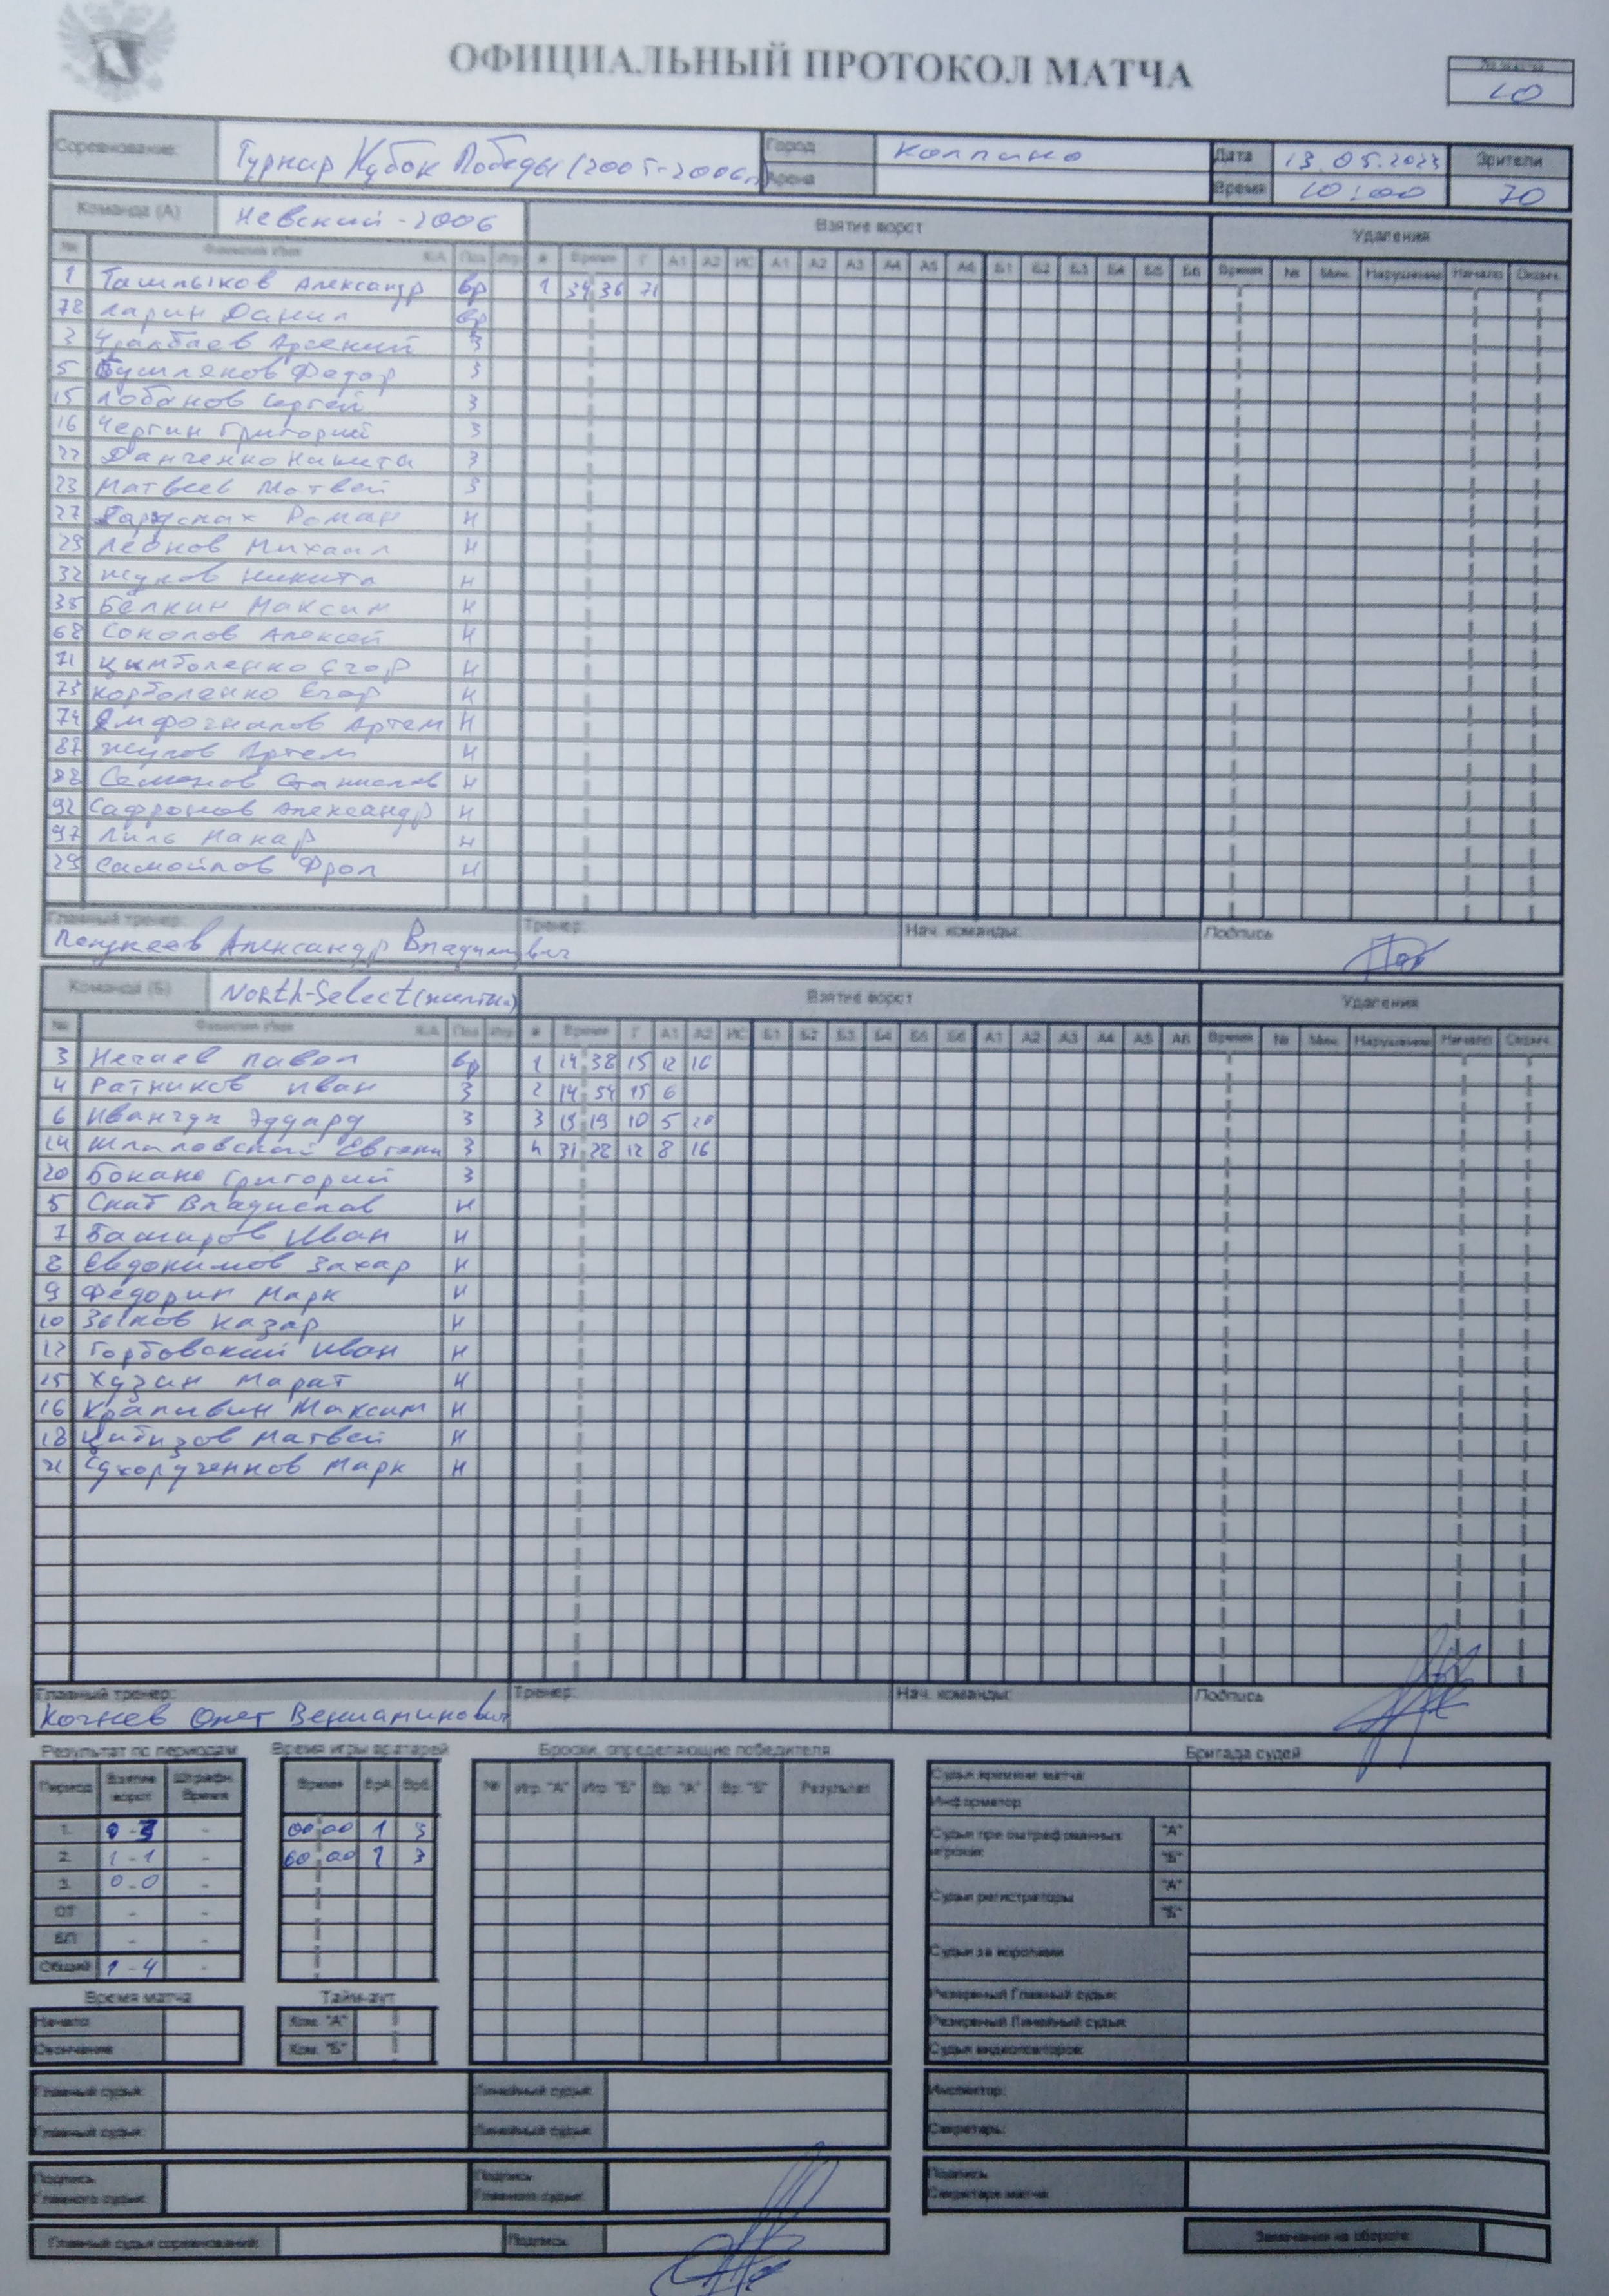 ОФИЦИАЛЬНЫЙ ПРОТОКОЛ МАТЧА
10
Соревнование: Турнир Кубок Победы (2005-2006г.) Город Колпино Дата 13.05.2023 Зрители
Арена Время 10:00 70
Команда (А) Невский-2006 Взятие ворот Удаления
№ Фамилия Имя К/А Поз Игр # Время Г А1 А2 ИС А1 А2 А3 А4 А5 А6 Б1 Б2 Б3 Б4 Б5 Б6 Время № Мин. Нарушение Начало Оконч.
1 Ташлыков Александр вр 1 34 36 71
78 Ларин Данил вр
3 Уралбаев Арсений З
5 Бушляков Федор З
15 Лобанов Сергей З
16 Чергин Григорий З
22 Данченко Никита З
23 Матвеев Матвей З
27 Роман Н
29 Леонов Михаил Н
32 Жуков Никита Н
38 Белкин Максим Н
68 Соколов Алексей Н
71 Цымболенко Егор Н
73 Корболенко Егор Н
74 Артем Н
87 Жуков Артем Н
88 Семенов Станислав Н
92 Сафронов Александр Н
97 Лиль Макар Н
29 Самойлов Фрол Н
Главный тренер: Тренер: Нач. команды: Подпись
Александр Владимирович
Команда (Б) North-Select(желты.) Взятие ворот Удаления
№ Фамилия Имя К/А Поз Игр # Время Г А1 А2 ИС Б1 Б2 Б3 Б4 Б5 Б6 А1 А2 А3 А4 А5 А6 Время № Мин. Нарушение Начало Оконч.
3 Нечаев Павел вр 1 14 38 15 12 16
4 Ратников Иван З 2 14 54 15 6
6 Иванчук Эдуард З 3 19 19 10 5 20
14 Шпаловский Евгений З 4 31 28 12 8 16
20 Бокане Григорий З
5 Скиб Владислав Н
7 Баширов Иван Н
8 Евдокимов Захар Н
9 Федорин Марк Н
10 Зыков Назар Н
12 Горбовский Иван Н
15 Хузин Марат Н
16 Крапивин Максим Н
18 Цибизов Матвей Н
21 Сухорученков Марк Н
Главный тренер: Тренер: Нач. команды: Подпись
Кочнев Олег Вениаминович
Результат по периодам Время игры вратарей Броски, определяющие победителя Бригада судей
Период Взятие ворот Штрафн. Время Время ВрА ВрБ № Игр. "А" Игр. "Б" Вр. "А" Вр. "Б" Результат
Судья времени матча
Информатор
1. 0-3 - 00 00 1 3
2. 1-1 - 60 00 1 3
3. 0-0 -
ОТ - -
БП - -
Общий 1-4
Судьи при оштрафованных игроках "А" "Б"
Судьи регистраторы "А" "Б"
Судьи за воротами
Резервный Главный судья:
Резервный Линейный судья:
Судья видеоповторов:
Время матча Тайм-аут
Начало Ком. "А"
Окончание Ком. "Б"
Главный судья: Линейный судья: Инспектор:
Главный судья: Линейный судья: Секретарь:
Подпись Главного судьи: Подпись Главного судьи: Подпись Секретаря матча
Главный судья соревнований: Подпись Замечания на обороте